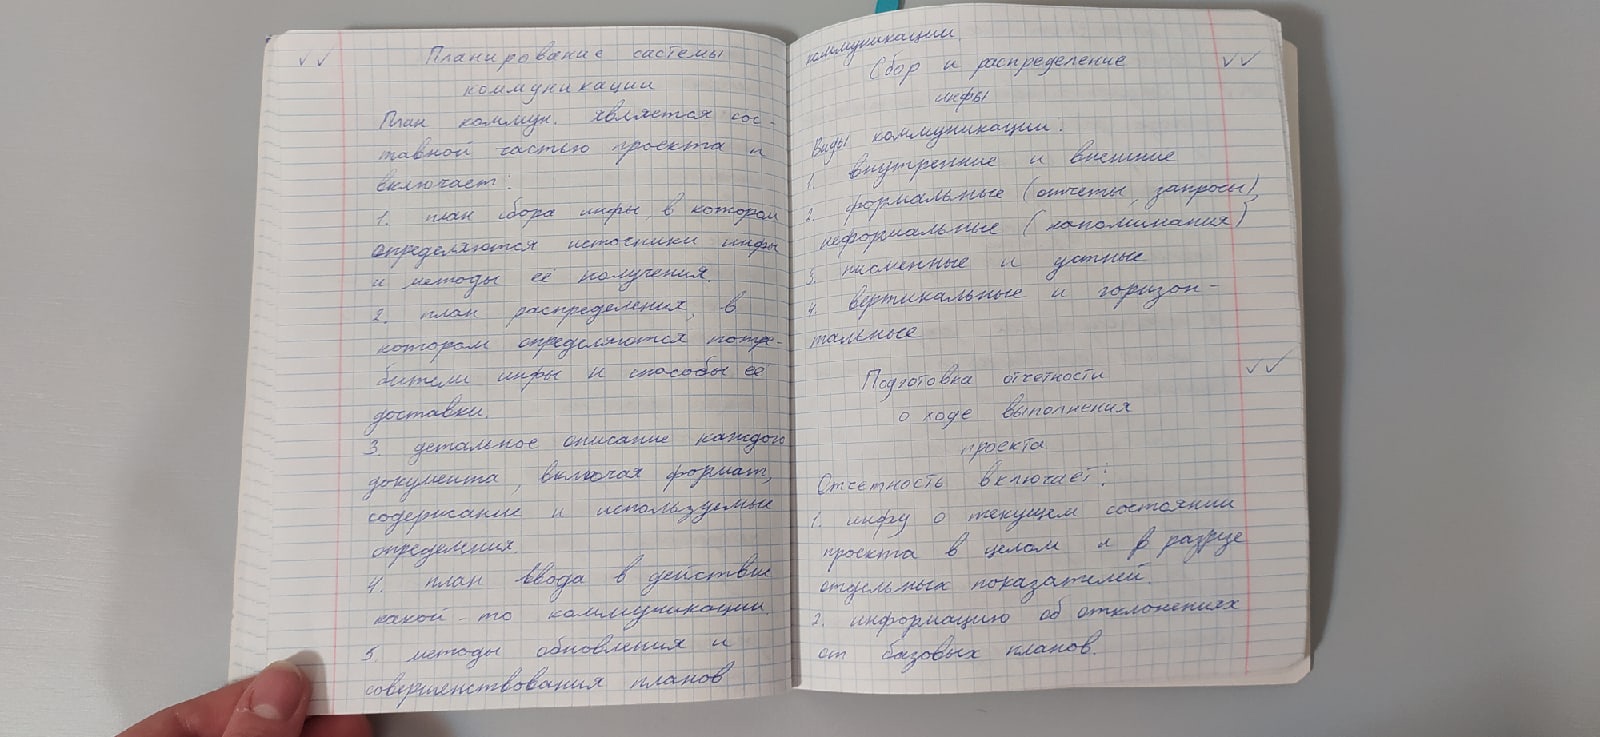 Планирование системы
коммуникации
План коммун. является сос-
тавной частью проекта и
включает:
1. план сбора инфы, в котором
определяются источники инфы
и методы её получения.
2. план распределения, в
котором определяются потре-
бители инфы и способы её
доставки.
3. детальное описание каждого
документа, включая формат,
содержание и используемые
определения
4. план ввода в действие
какой-то коммуникации.
5. методы обновления и
совершенствования планов
коммуникации.
Сбор и распределение
инфы
Виды коммуникации:
1. внутренние и внешние
2. формальные (отчеты, запросы),
неформальные (напоминания)
3. письменные и устные
4. вертикальные и горизон-
тальные
Подготовка отчетности
о ходе выполнения
проекта
Отчетность включает:
1. инфу о текущем состоянии
проекта в целом и в разрезе
отдельных показателей.
2. информацию об отклонениях
от базовых планов.